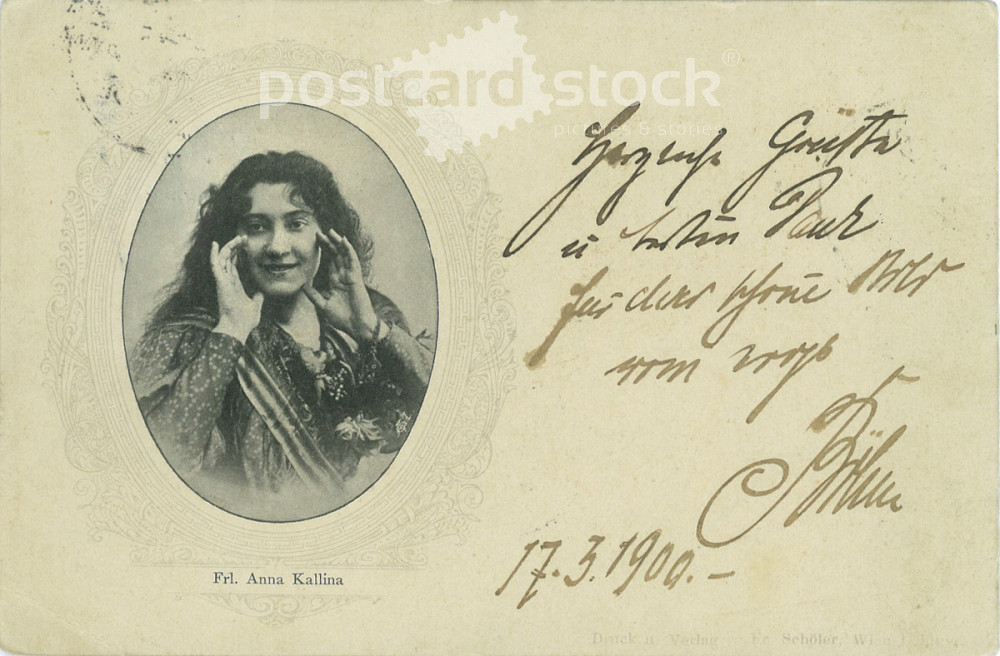 postcard stock®
pictures & stories
Herzliche Grüsse
u besten Dank
für das schöne Bild
vom
17.3.1900.-
Frl. Anna Kallina
Druck u. Verlag Fr. Schöler, Wien